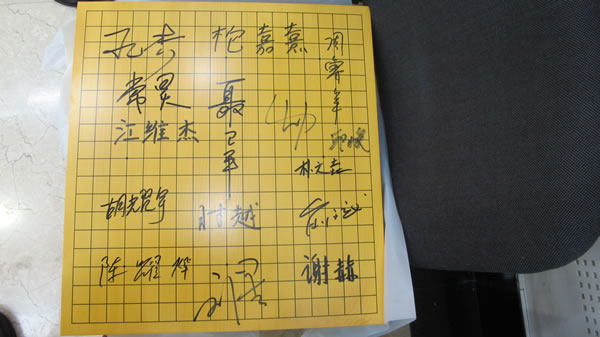 孔杰
柁嘉熹
周睿羊
常昊
聂卫平
江维杰
邱峻
胡耀宇
时越
陈耀烨
刘星
谢赫